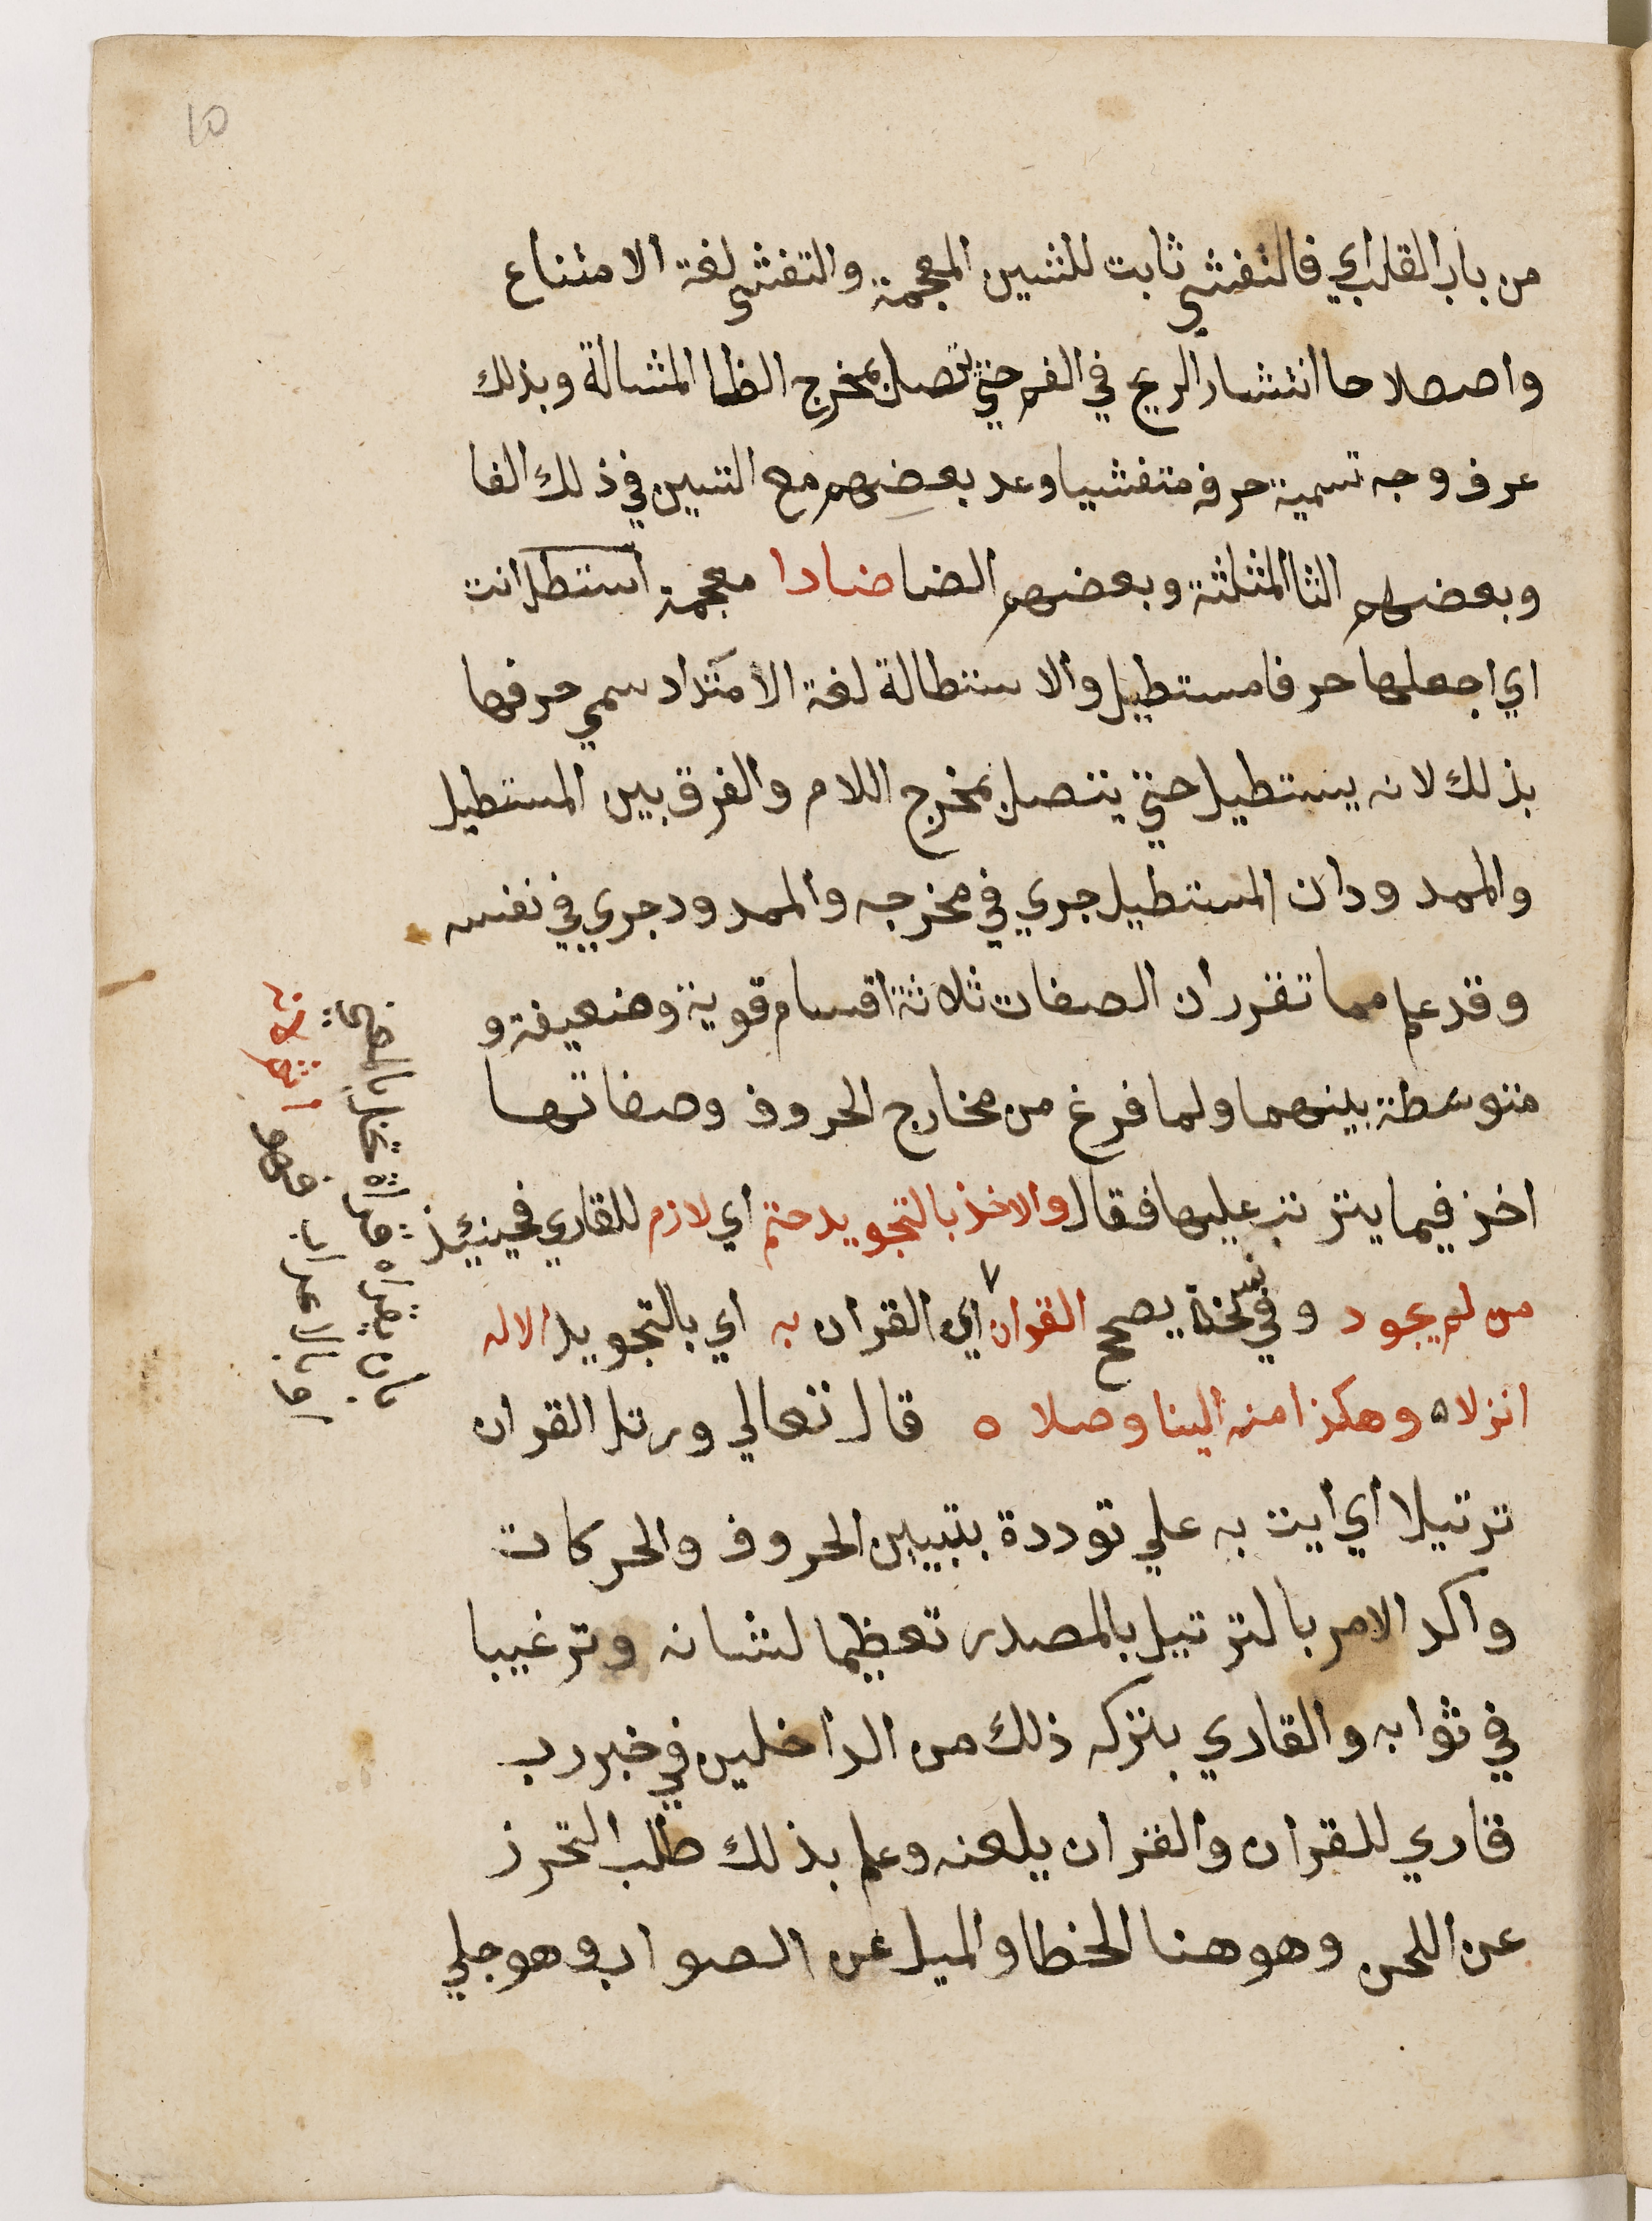 من باب القلب اي فالتفشي ثابت للشين المعجمة والتفشي لغة الامتناع
واصطلاحا انتشار الريح في الفم حتي تتصل بمخرج الظا المشالة وبذلك
عرف وجه تسمية حرفه متفشيا وعد بعضهم مع الشين في ذلك الفا
وبعضهم الثا المثلثة وبعضهم الضا ضادا معجمة استطل انت
اي اجعلها حرفا مستطيل والاستطالة لغة الامتداد سمي حرفها
بذلك لانه يستطيل حتي يتصل بمخرج اللام والفرق بين المستطيل
والممدود ان المستطيل جري في مخرجه والممدود جري في نفسه
وقد علم مما تقرر ان الصفات ثلاثة اقسام قوية وضعيفة و
متوسطة بينهما ولما فرغ من مخارج الحروف وصفاتها
اخذ فيما يترتب عليها فقال والاخذ بالتجويد حتم اي لازم للقاري فحينيذ
من لم يجود وفي نسخة يصحح القران اي القران به اي بالتجويد الاله
انزلا ه وهكذا منه الينا وصلا ه قال تعالي ورتل القران
ترتيلا اي ايت به علي توددة بتبيين الحروف والحركات
واكد الامر بالترتيل بالمصدر تعظيما لشانه وترغيبا
في ثوابه والقاري بتركه ذلك من الداخلين في خبر رب
قاري للقران والقران يلعنه وعلم بذلك طلب التحرز
عن اللحن وهو هنا الخطا والميل عن الصواب وهو جلي
بان يقراه قراة تخل بالمعني
او بالاعراب
10